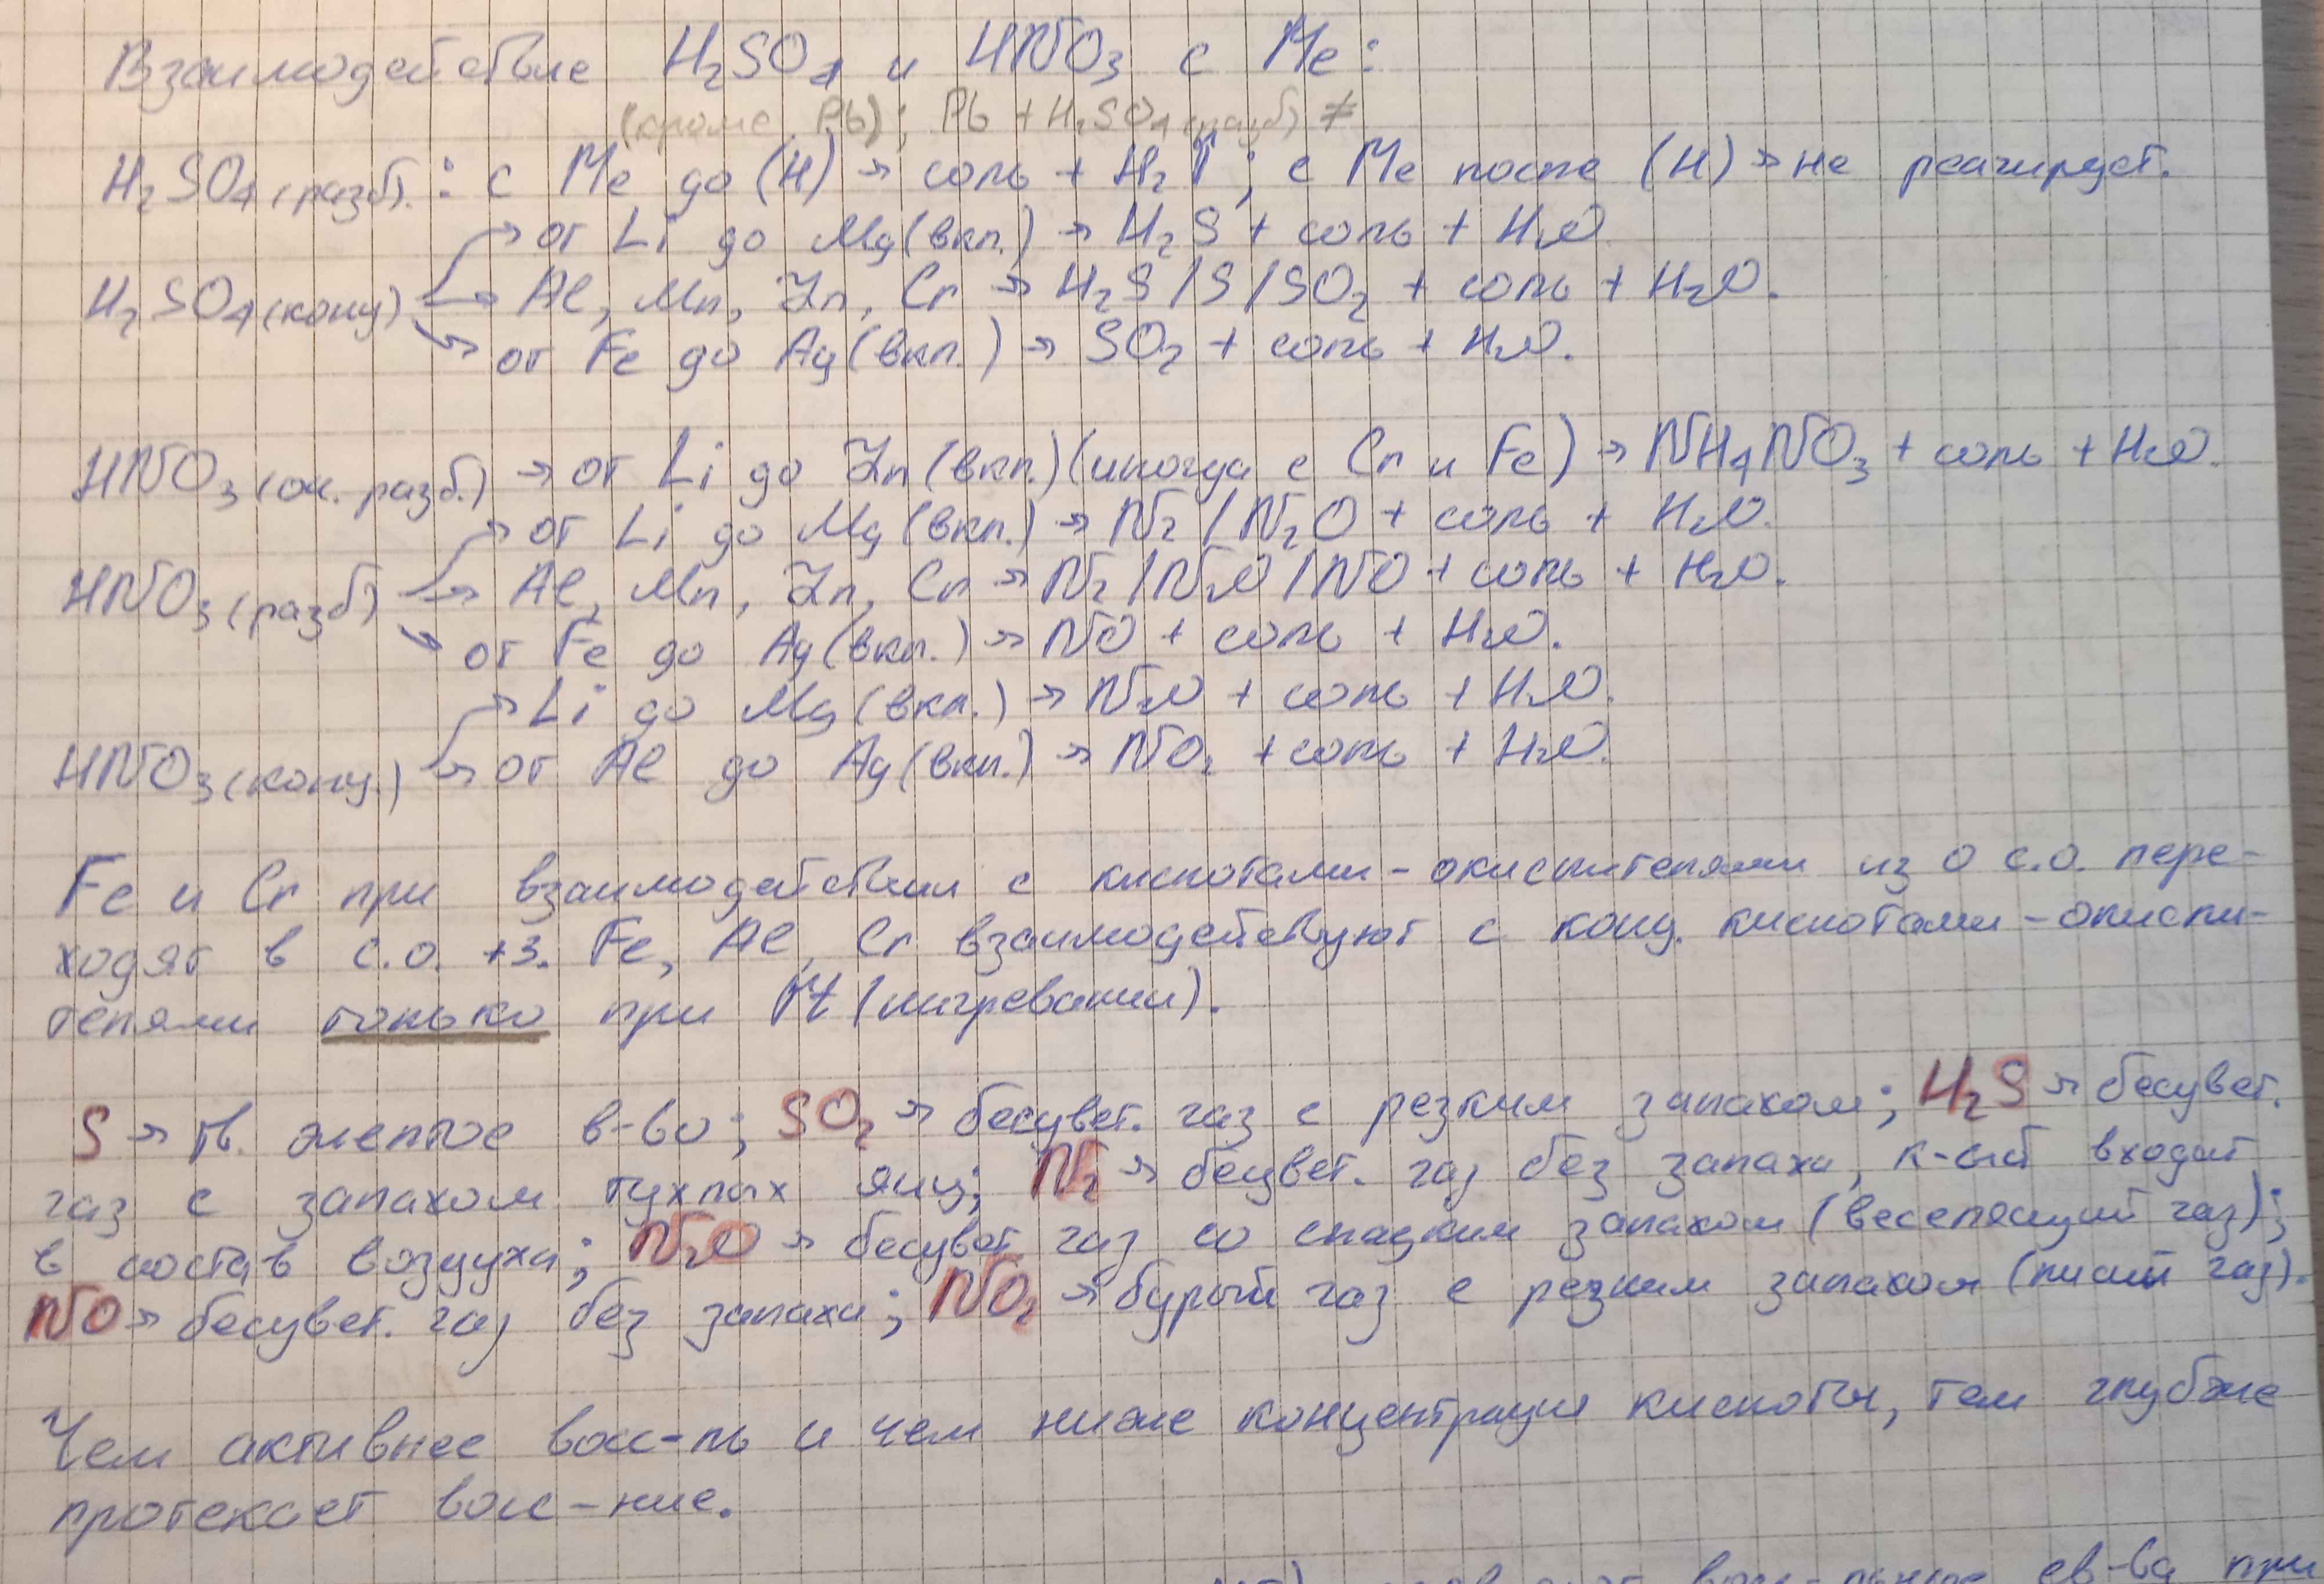 Взаимодействие H₂SO₄ и HNO₃ с Me:
(кроме Pb); Pb + H₂SO₄ (разб) ≠
H₂SO₄ (разб).: с Me до (H) → соль + H₂↑; с Me после (H) → не реагирует.
от Li до Mg (вкл.) → H₂S + соль + H₂O
H₂SO₄ (конц) → Al, Mn, Zn, Cr → H₂S/S/SO₂ + соль + H₂O.
от Fe до Ag (вкл.) → SO₂ + соль + H₂O.
HNO₃ (оч. разб.) → от Li до Zn (вкл.) (иногда с Cr и Fe) → NH₄NO₃ + соль + H₂O.
от Li до Mg (вкл.) → N₂/N₂O + соль + H₂O.
HNO₃ (разб) → Al, Mn, Zn, Cr → N₂/N₂O/NO + соль + H₂O.
от Fe до Ag (вкл.) → NO + соль + H₂O.
Li до Mg (вкл.) → N₂O + соль + H₂O.
HNO₃ (конц.) → от Al до Ag (вкл.) → NO₂ + соль + H₂O.
Fe и Cr при взаимодействии с кислотами-окислителями из 0 с.о. пере-
ходят в с.о. +3. Fe, Al, Cr взаимодействуют с конц. кислотами-окисли-
телями только при t (нагревании).
S → тв. желтое в-во; SO₂ → бесцвет. газ с резким запахом; H₂S → бесцвет.
газ с запахом тухлых яиц; N₂ → бесцвет. газ без запаха, к-ый входит
в состав воздуха; N₂O → бесцвет. газ со сладким запахом (веселящий газ);
NO → бесцвет. газ без запаха; NO₂ → бурый газ с резким запахом (лисий газ).
Чем активнее восс-ль и чем ниже концентрация кислоты, тем глубже
протекает восс-ние.
св-ва при